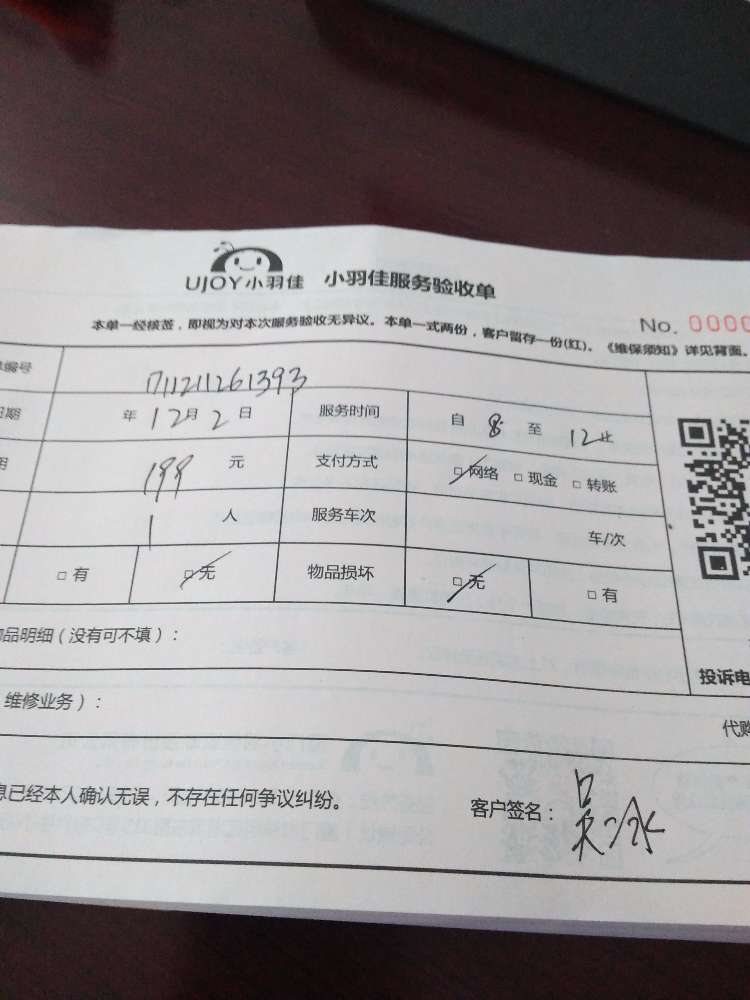 UJOY小羽佳 小羽佳服务验收单
No. 0000
本单一经核签，即视为对本次服务验收无异议。本单一式两份，客户留存一份(红)。《维保须知》详见背面。
编号 1711211261393
日期 年 12月 2 日 服务时间 自 8 至 12止
用 199 元 支付方式 □网络 □现金 □转账
1 人 服务车次 车/次
□有 □无 物品损坏 □无 □有
品明细（没有可不填）：
投诉电
维修业务）：
代购
息已经本人确认无误，不存在任何争议纠纷。 客户签名：